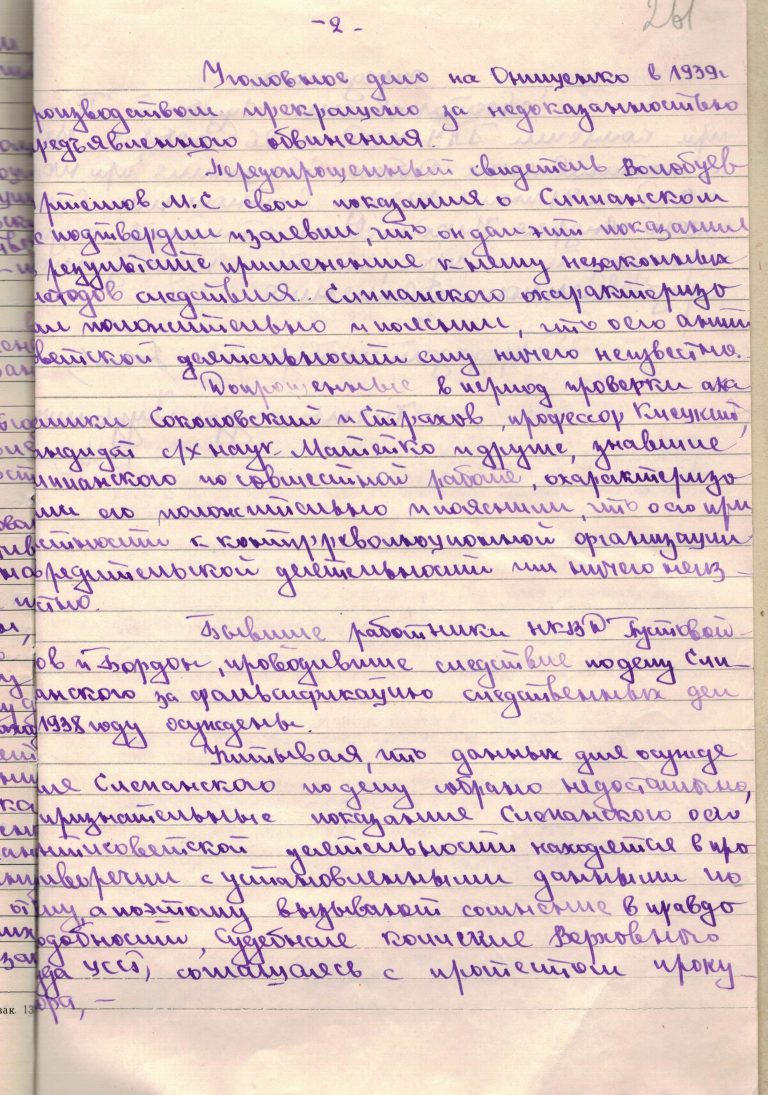 - 2 -
261
Уголовное дело на Онищенко в 1939г
роизводством прекращено за недоказанностью
редъявленного обвинения.
Передопрошенный свидетель Волобуев
ртемов М.С свои показания о Слипанском
е подтвердил и заявил, что он дал эти показания
результате применения к нему незаконных
етодов следствия. Слипанского охарактеризо
ал положительно и пояснил, что о его анти
ветской деятельности ему ничего неизвестно.
Допрошенные в период проверки ака
емики Соколовский и Страхов, профессор
андидат с/х наук Матейко и другие, знавшие
ипанского по совместной работе, охарактеризо
ли его положительно и пояснили, что о его при
стности к контрреволюционной организации
вредительской деятельности им ничего неиз-
стно.
Бывшие работники НКВД Пустовой-
ов и Бордон, проводившие следствие по делу Сли-
анского за фальсификацию следственных дел
1938 году осуждены.
Учитывая, что данных для осужде
ия Слепанского по делу собрано недостаточно,
признательные показания Слепанского о его
антисоветской деятельности находятся в про
иворечии с установленными данными по
лу, а поэтому вызывают сомнение в правдо
одобности, Судебная коллегия Верховного
уда УССР, соглашаясь с протестом проку-
ора, —
зак. 13